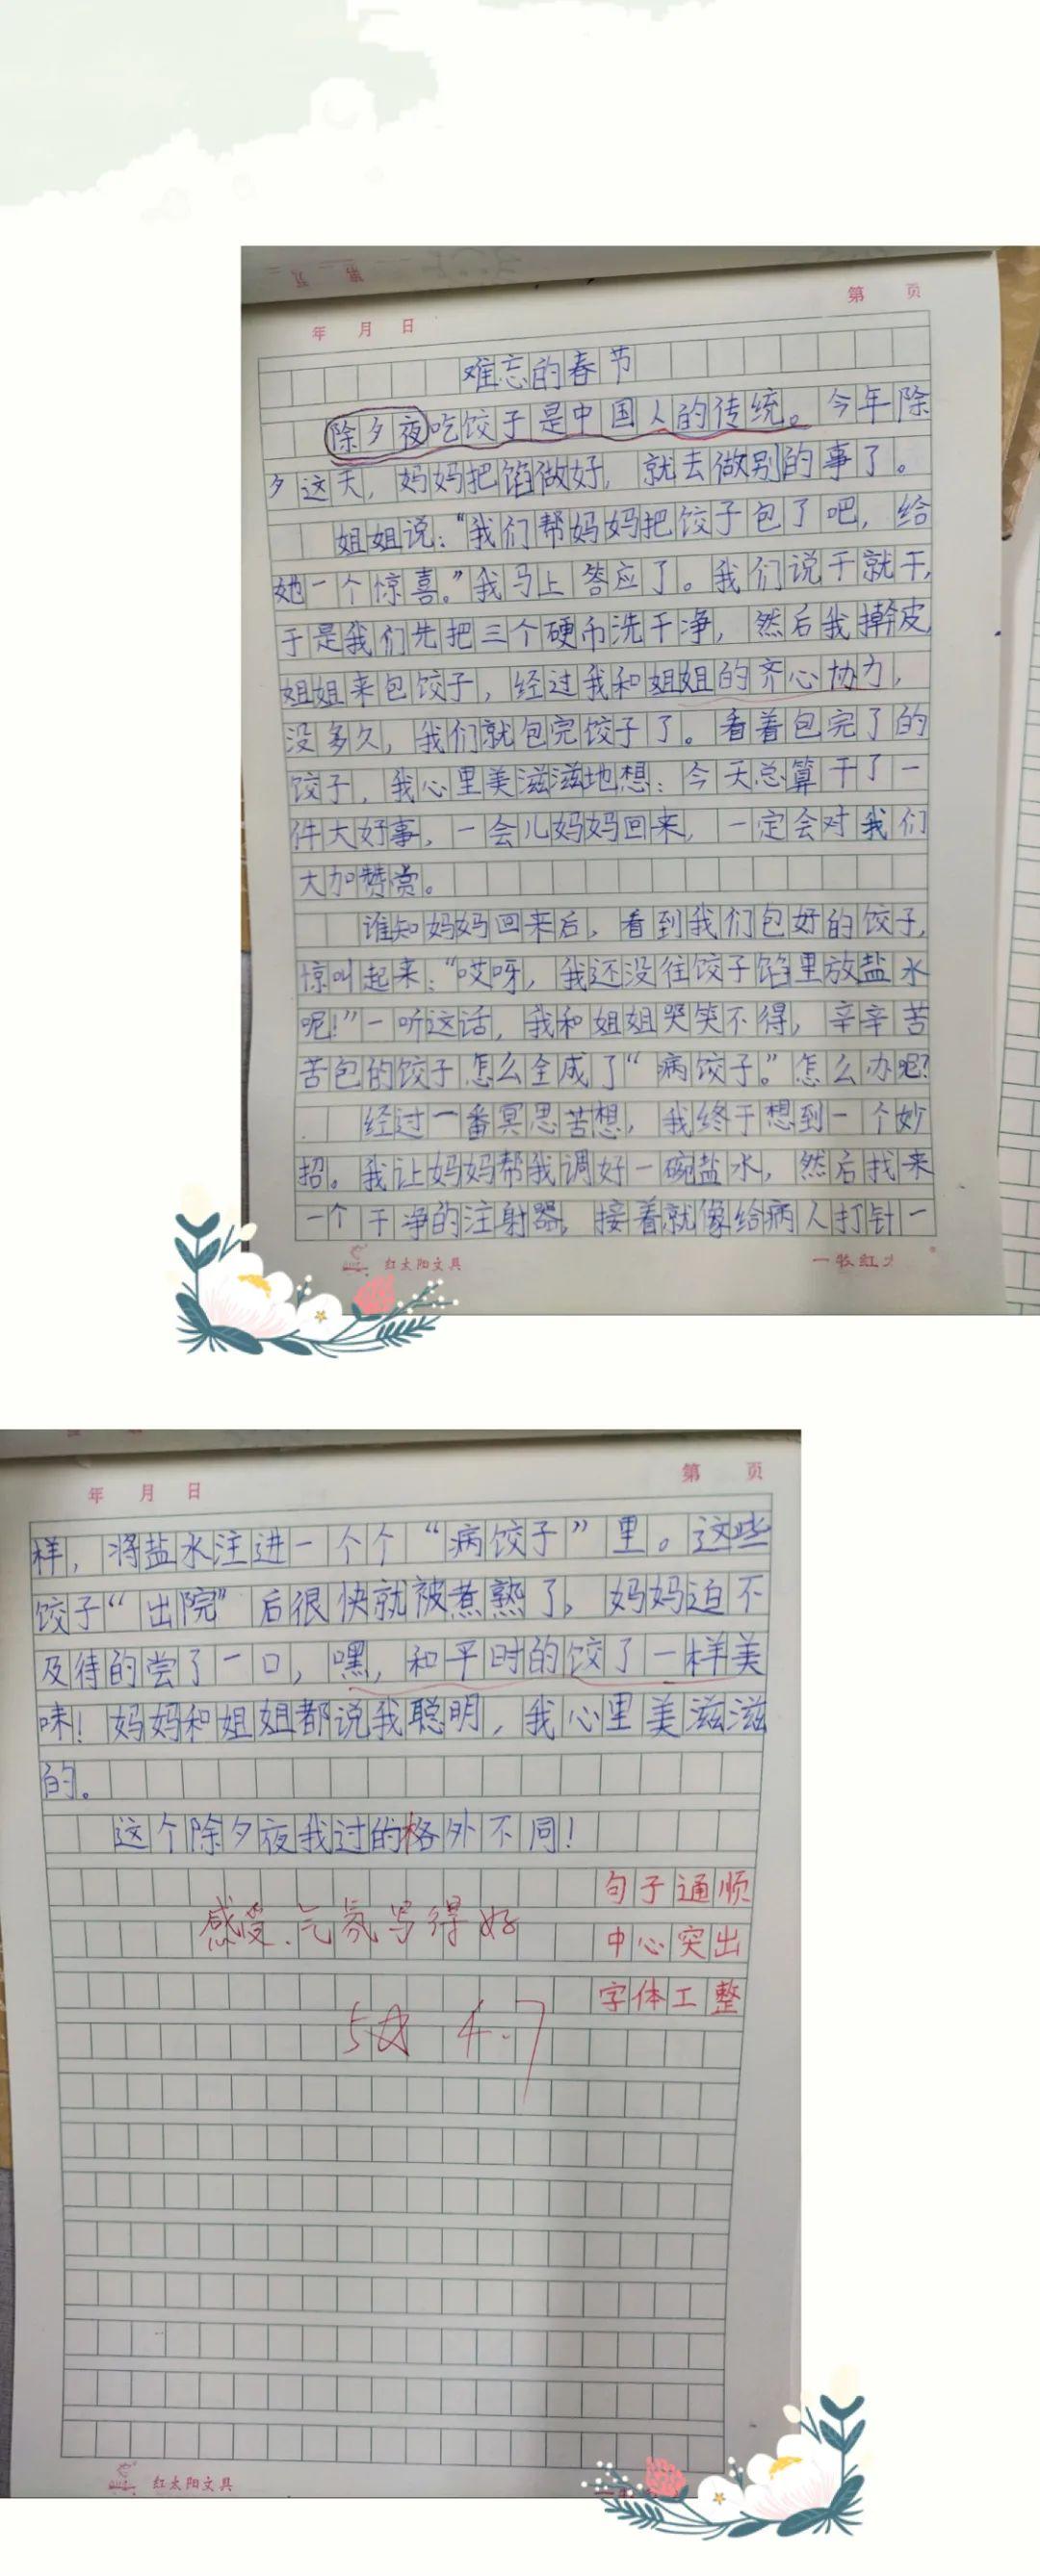 第 页
年 月 日
难忘的春节
除夕夜吃饺子是中国人的传统。今年除
夕这天，妈妈把馅做好，就去做别的事了。
姐姐说：“我们帮妈妈把饺子包了吧，给
她一个惊喜。”我马上答应了。我们说干就干，
于是我们先把三个硬币洗干净，然后我擀皮，
姐姐来包饺子，经过我和姐姐的齐心协力，
没多久，我们就包完饺子了。看着包完了的
饺子，我心里美滋滋地想：今天总算干了一
件大好事，一会儿妈妈回来，一定会对我们
大加赞赏。
谁知妈妈回来后，看到我们包好的饺子，
惊叫起来：“哎呀，我还没往饺子馅里放盐水
呢！”一听这话，我和姐姐哭笑不得，辛辛苦
苦包的饺子怎么全成了“病饺子。”怎么办呢？
经过一番冥思苦想，我终于想到一个妙
招。我让妈妈帮我调好一碗盐水，然后找来
一个干净的注射器，接着就像给病人打针一
红太阳文具
第 页
年 月 日
样，将盐水注进一个个“病饺子”里。这些
饺子“出院”后很快就被煮熟了，妈妈迫不
及待的尝了一口，嘿，和平时的饺了一样美
味！妈妈和姐姐都说我聪明，我心里美滋滋
的。
这个除夕夜我过的格外不同！
句子通顺
感受、气氛写得好
中心突出
字体工整
5☆ 4.7
红太阳文具